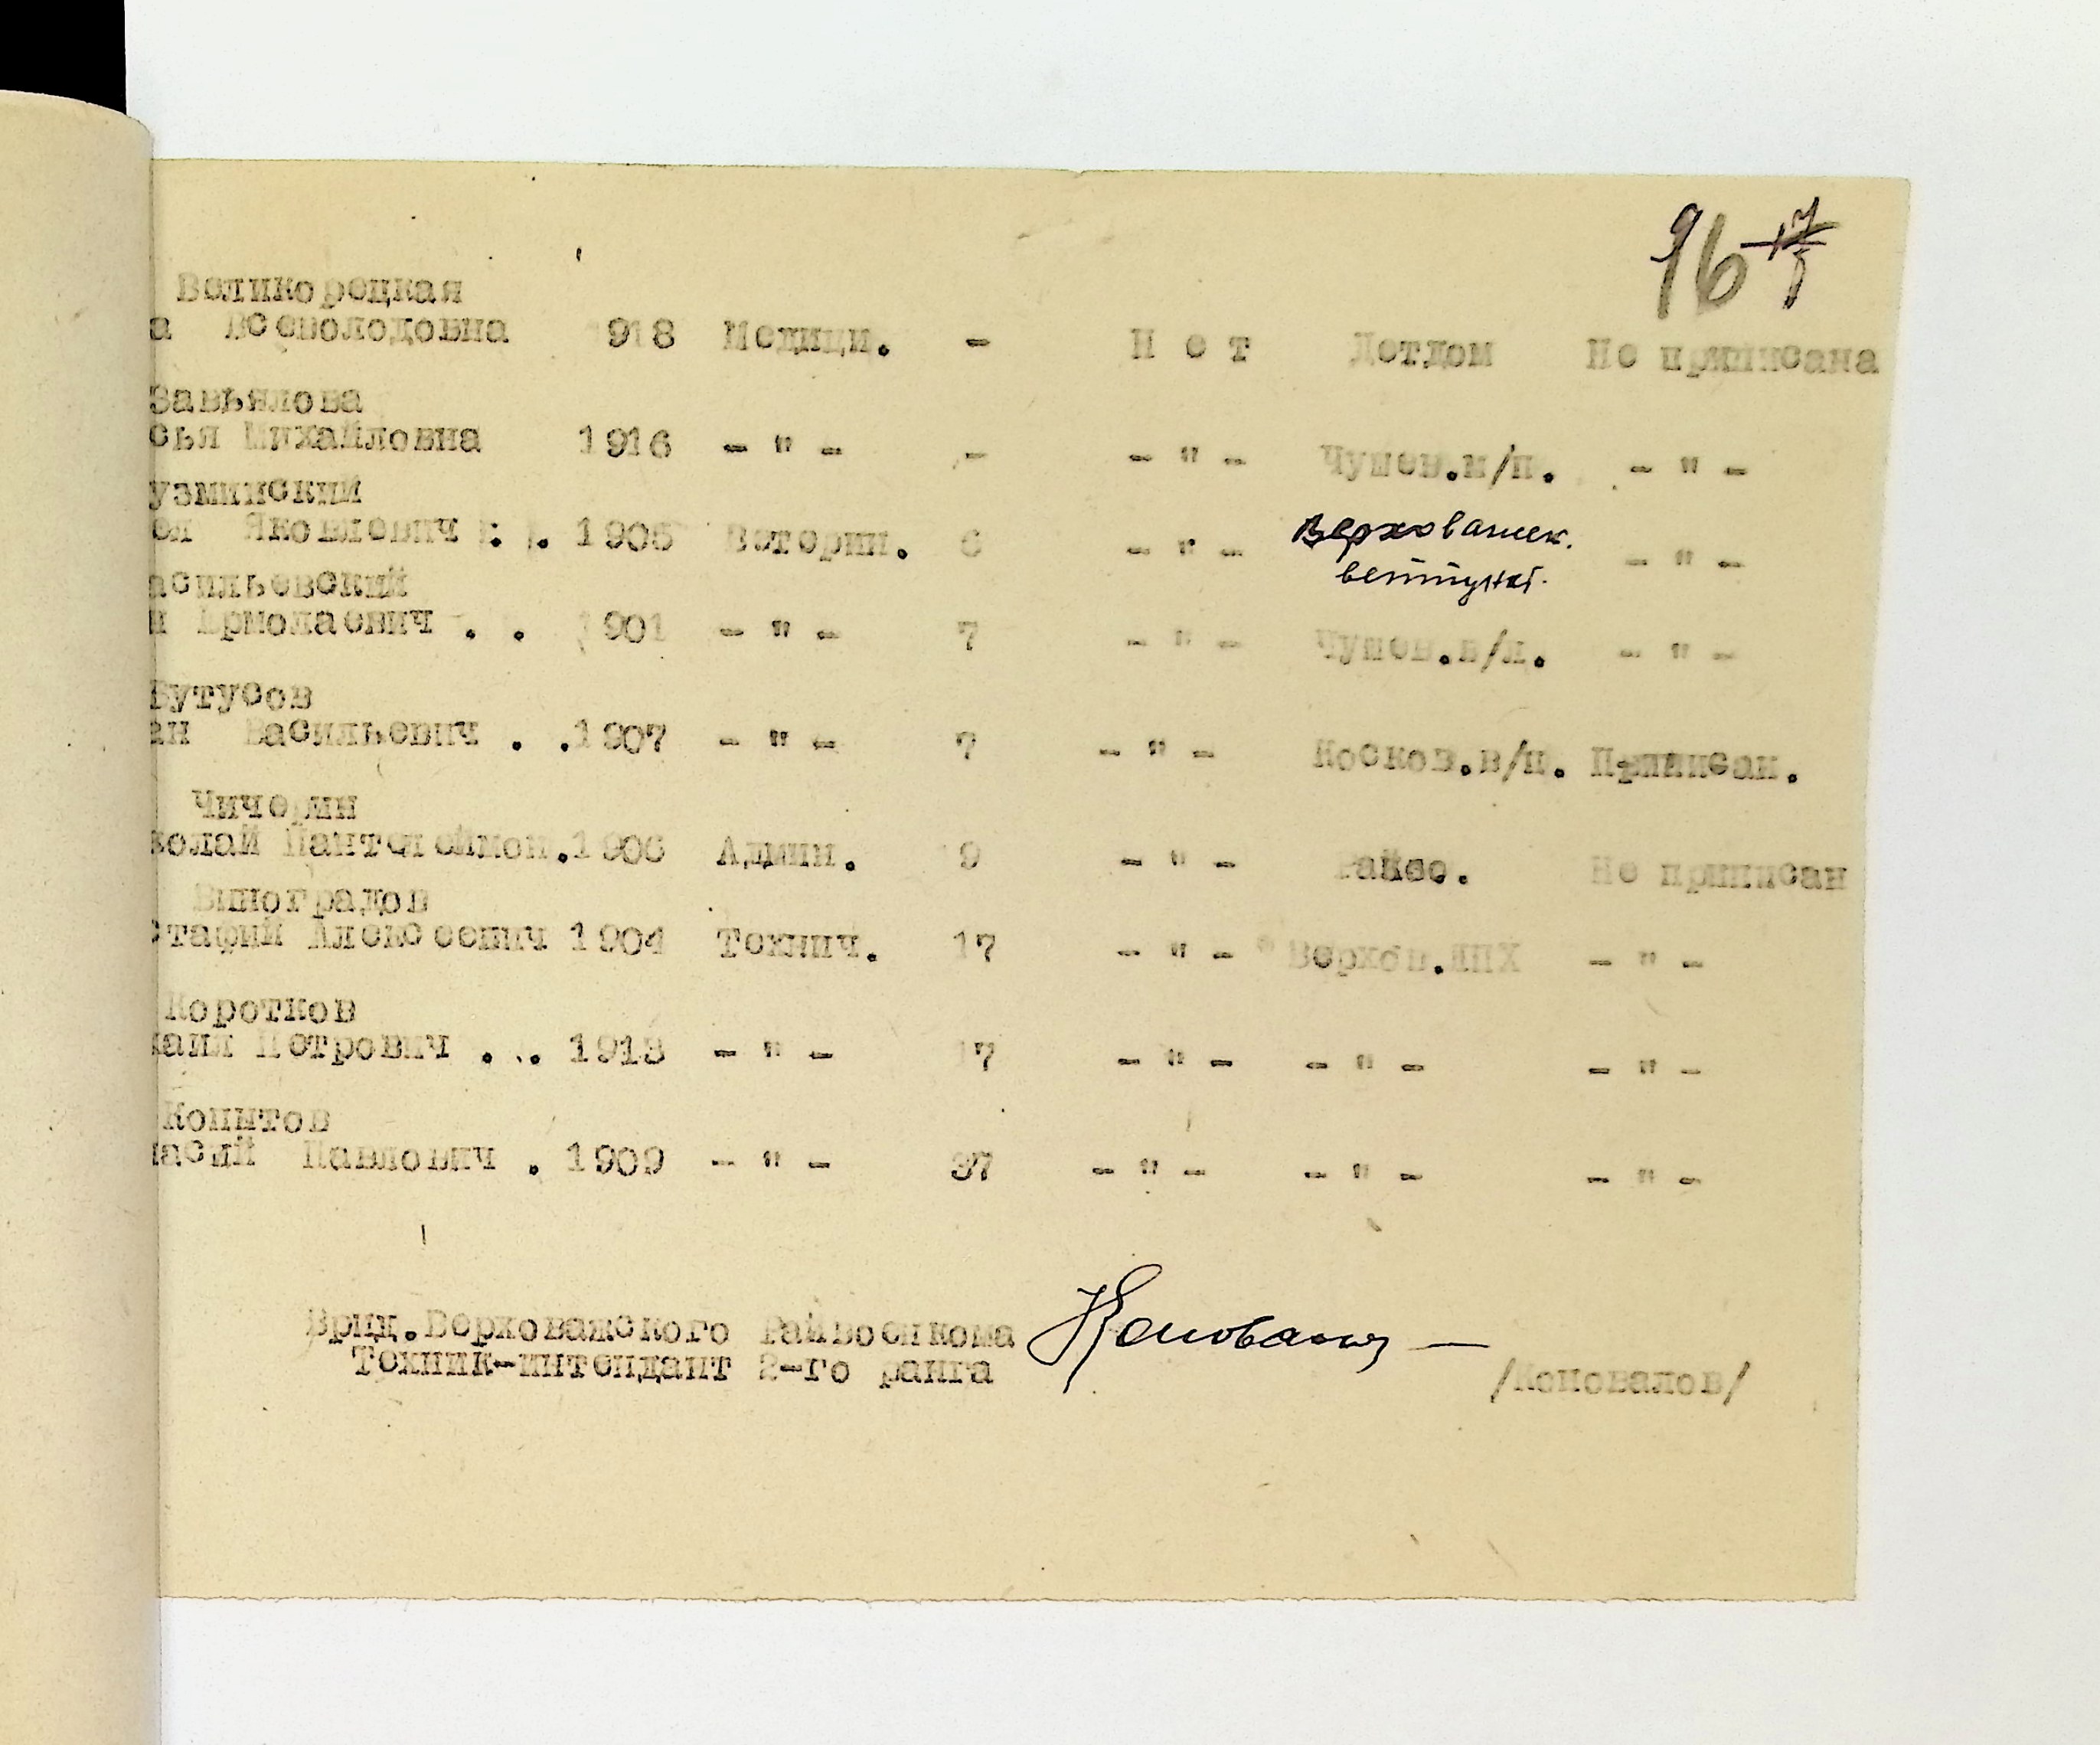 96
Великорецкая
а Всеволодовна 1918 Медици. - Н е т Детдом Не приписана
Завьялова
сья Михайловна 1916 - " - - - " - Чушев.в/п. - " -
узминский
ей Яковлевич . . 1905 Ветерин. 6 - " - Верховажск. - " -
ветпункт.
асильевский
н Ермолаевич . . 1901 - " - 7 - " - Чушев.в/п. - " -
Бутусов
ан Васильевич . .1907 - " - 7 - " - Носков.в/п. Приписан.
Чичерин
колай Пантелеймон.1906 Админ. 9 - " - Райзо. Не приписан
Виноградов
стафий Алексеевич 1904 Технич. 17 - " - Верхов.ЛПХ - " -
Коротков
хаил Петрович . . 1913 - " - 17 - " - - " - - " -
Копытов
асий Павлович . 1909 - " - 37 - " - - " - - " -
Врид.Верховажского Райвоенкома Коновалов
Техник-интендант 2-го ранга /Коновалов/